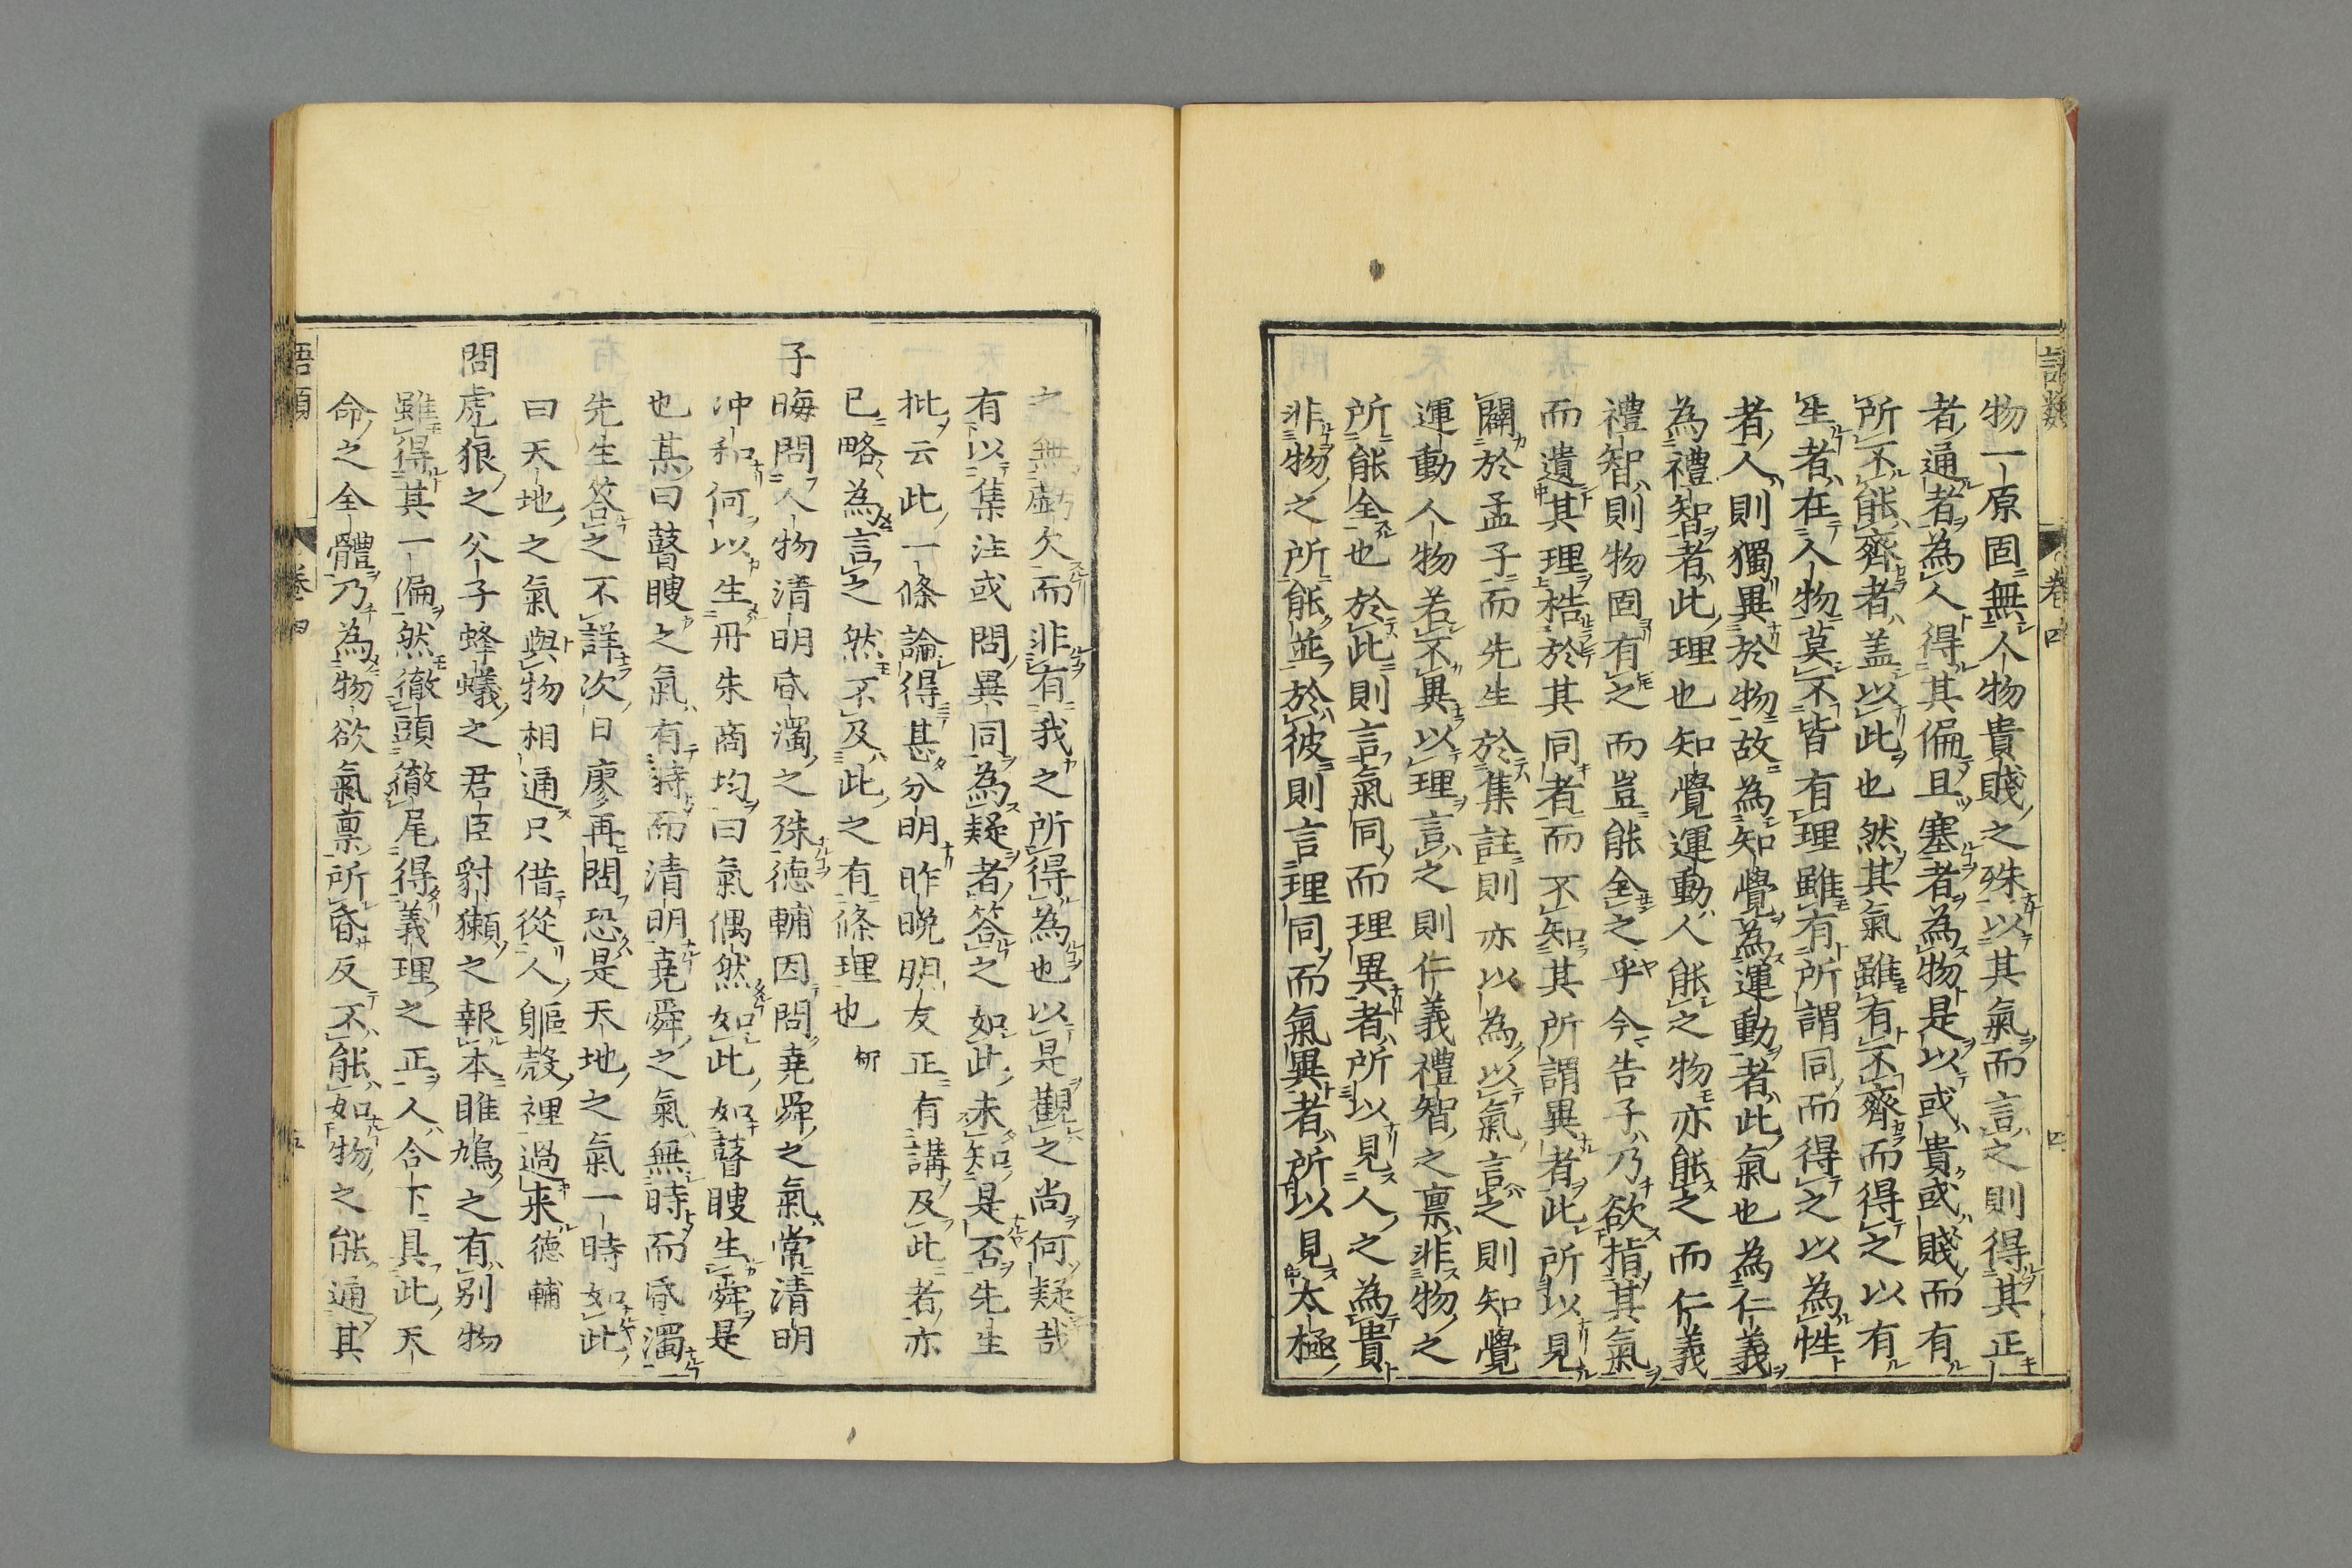 語類
卷四
四
物一原固無人物貴賤之殊以其氣而言之則得其正
者通者為人得其偏且塞者為物是以或貴或賤而有
所不能齊者盖以此也然其氣雖有不齊而得之以有
生者在人物莫不皆有理雖有所謂同而得之以為性
者人則獨異於物故為知覺為運動者此氣也為仁義
為禮智者此理也知覺運動人能之物亦能之而仁義
禮智則物固有之而豈能全之乎今告子乃欲指其氣
而遺其理梏於其同者而不知其所謂異者此所以見
闢於孟子而先生於集註則亦以為以氣言之則知覺
運動人物若不異以理言之則仁義禮智之禀非物之
所能全也於此則言氣同而理異者所以見人之為貴
非物之所能並於彼則言理同而氣異者所以見太極
之無虧欠而非有我之所得為也以是觀之尚何疑哉
有以集注或問異同為疑者答之如此未知是否先生
批云此一條論得甚分明昨晚朋友正有講及此者亦
已略為言之然不及此之有條理也
子晦問人物清明昏濁之殊德輔因問堯舜之氣常清明
冲和何以生丹朱商均曰氣偶然如此如瞽瞍生舜是
也某曰瞽瞍之氣有時而清明堯舜之氣無時而昏濁
先生答之不詳次日廖再問恐是天地之氣一時如此
曰天地之氣與物相通只借從人軀殼裡過来德輔
問虎狼之父子蜂蟻之君臣豺獺之報本雎鳩之有别物
雖得其一偏然徹頭徹尾得義理之正人合下具此天
命之全體乃為物欲氣禀所昏反不能如物之能通其
語類
卷四
五